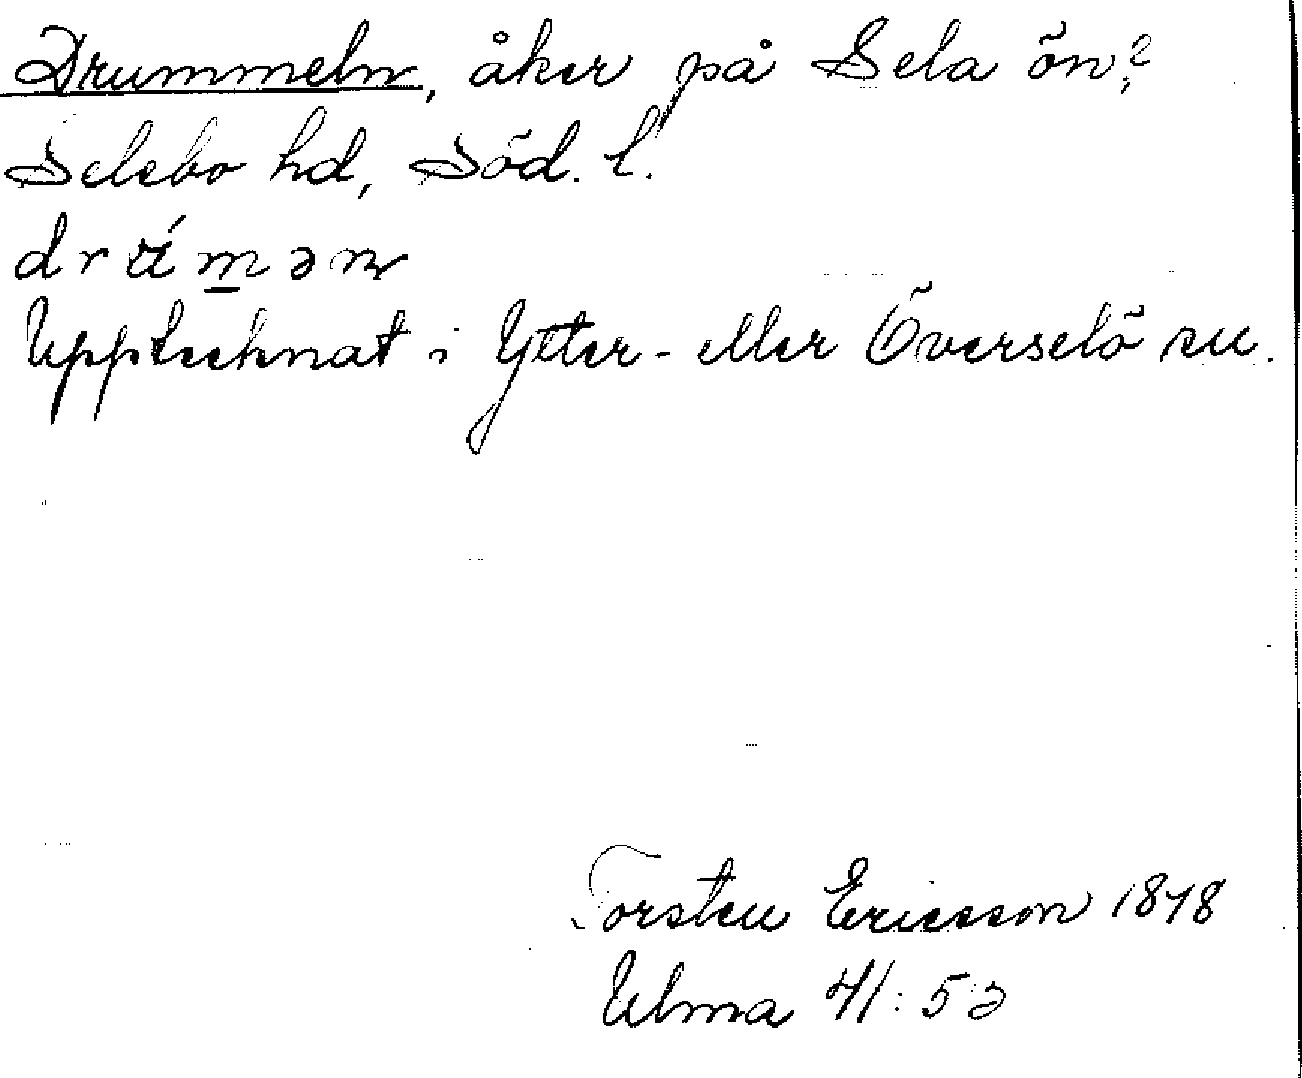 Drummeln, åker på Sela ön?,
Selebo hd, Söd. l.
Upptecknat i Ytter- eller Överselö sn.
Torsten Ericsson 1878
Ulma 41:53